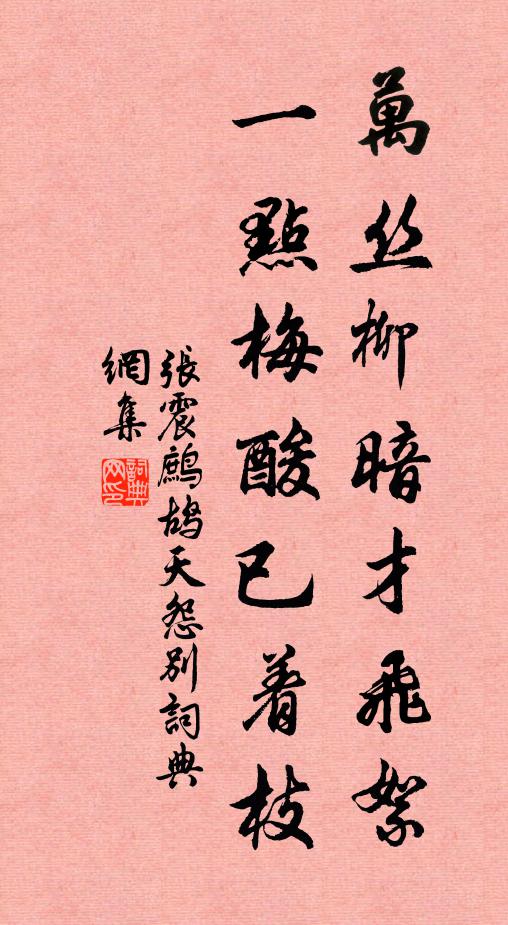 萬丝柳暗才飛絮
一點梅酸已着枝
張震鷓鴣天怨別詞典
網集
詞典網印